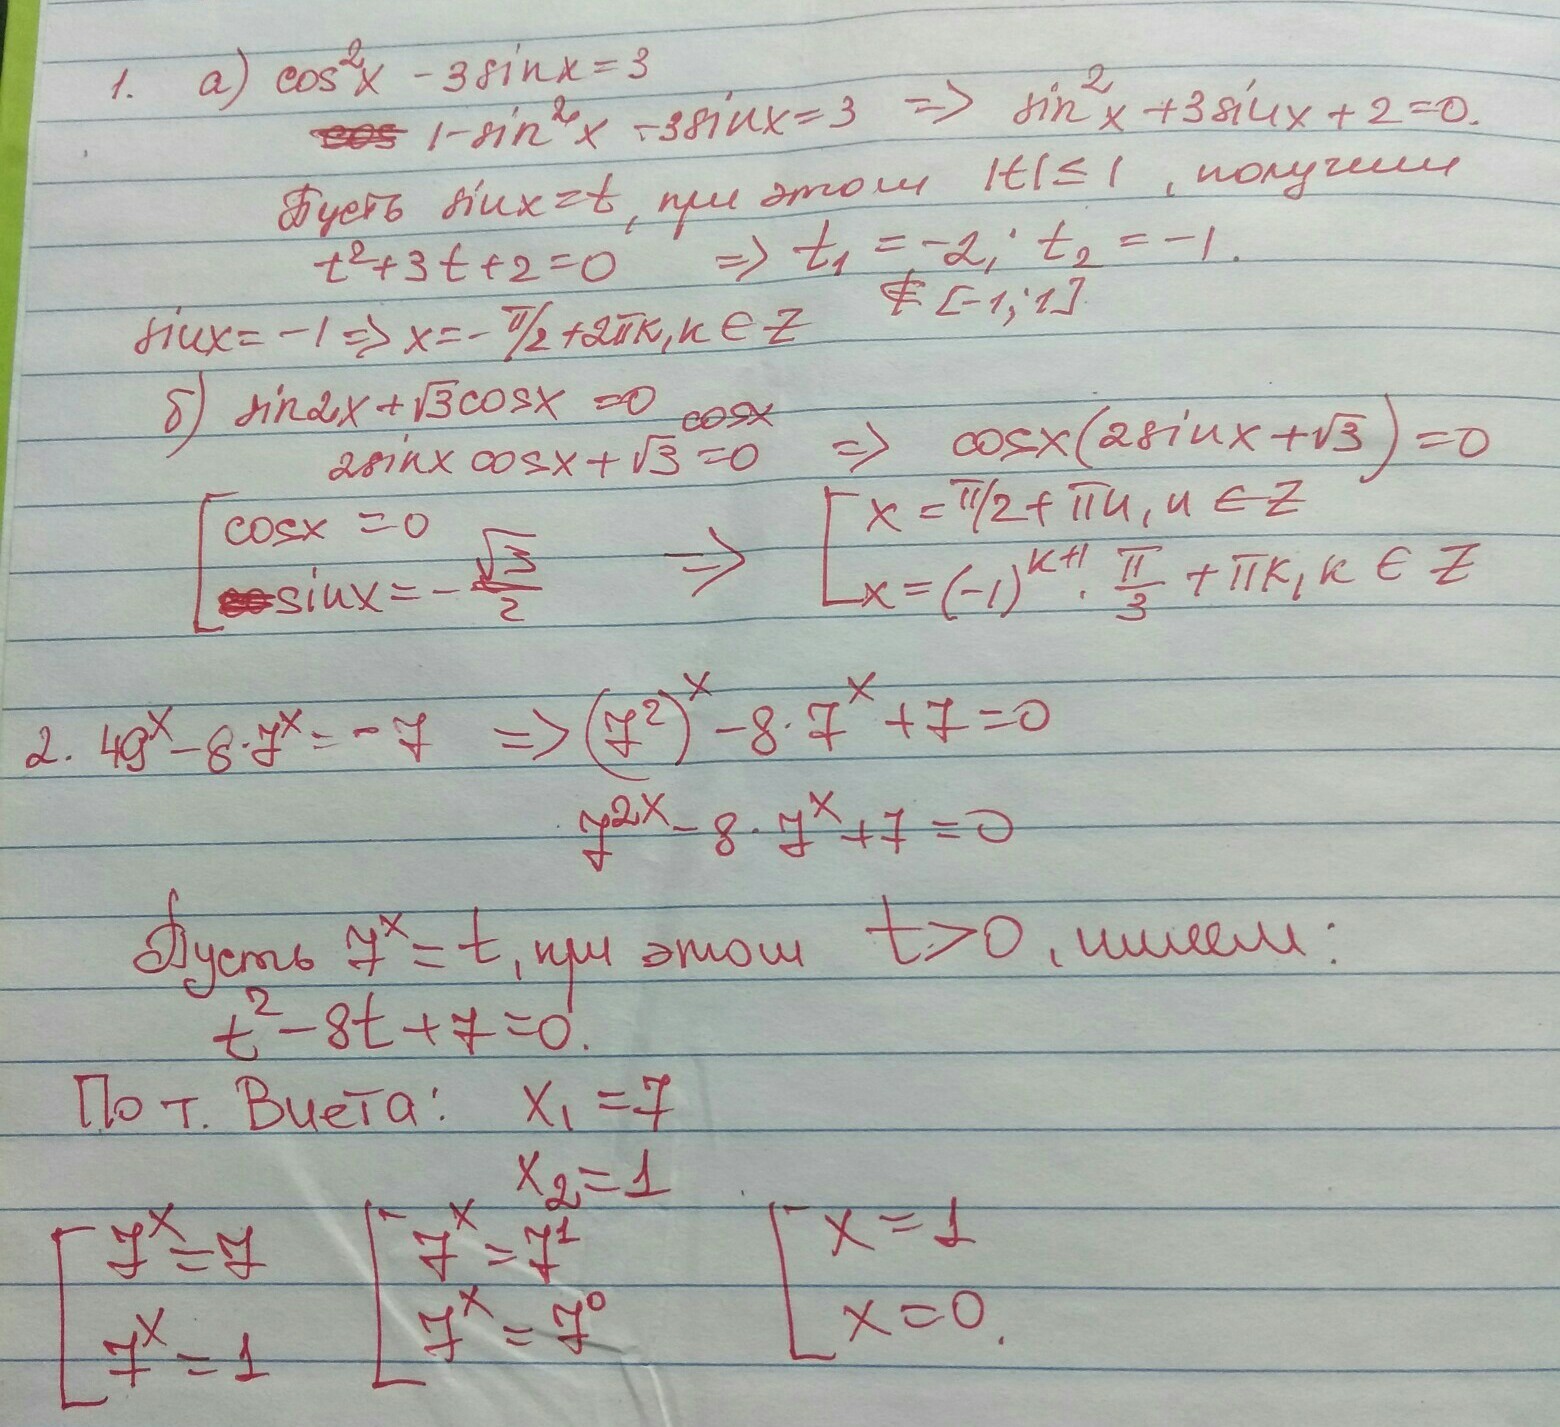 1. а) cos²x - 3sinx = 3
1 - sin²x - 3sinx = 3 => sin²x + 3sinx + 2 = 0.
Пусть sinx = t, при этом |t| ≤ 1, получим
t² + 3t + 2 = 0 => t₁ = -2; t₂ = -1.
∉ [-1; 1]
sinx = -1 => x = -π/2 + 2πk, k ∈ Z
б) sin2x + √3cosx = 0
2sinx cosx + √3 cosx = 0 => cosx(2sinx + √3) = 0
[ cosx = 0 => [ x = π/2 + πn, n ∈ Z
sinx = -√3/2 x = (-1)ᵏ⁺¹ · π/3 + πk, k ∈ Z
2. 49ˣ - 8·7ˣ = -7 => (7²)ˣ - 8·7ˣ + 7 = 0
7²ˣ - 8·7ˣ + 7 = 0
Пусть 7ˣ = t, при этом t > 0, имеем:
t² - 8t + 7 = 0.
По т. Виета: x₁ = 7
x₂ = 1
[ 7ˣ = 7 [ 7ˣ = 7¹ [ x = 1
7ˣ = 1 7ˣ = 7⁰ x = 0.